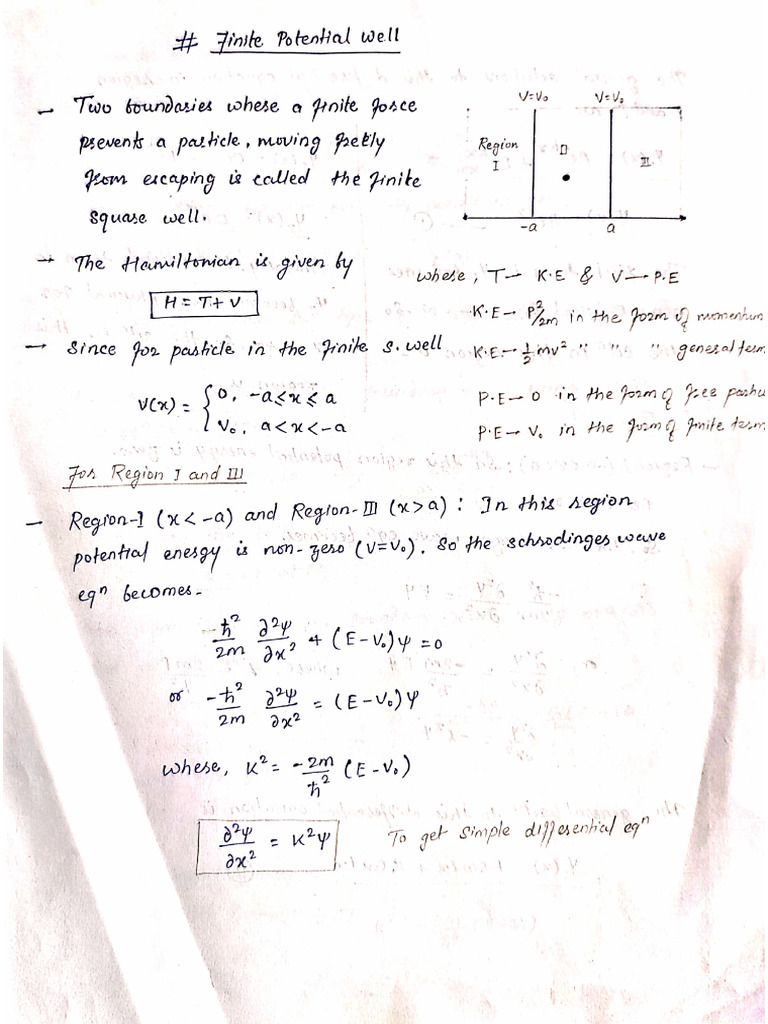 # Finite Potential Well
- Two boundaries where a finite force
prevents a particle, moving freely
from escaping is called the finite
square well.
V=V₀ V=V₀
Region
I
II
III
-a a
→ The Hamiltonian is given by
H = T+V
where, T→ K.E & V→P.E
K.E→ P²/2m in the form of momentum
K.E→ ½mv² " " " general term
- Since for particle in the finite s.well
V(x) = { 0, -a≤x≤a
V₀, a<x<-a
P.E→ 0 in the form of free
P.E→ V₀ in the form of finite term
For Region I and III
- Region-I (x<-a) and Region-III (x>a) : In this region
potential energy is non-zero (V=V₀). So the schrodinger wave
eqⁿ becomes-
-ħ²/2m ∂²ψ/∂x² + (E-V₀)ψ = 0
or -ħ²/2m ∂²ψ/∂x² = (E-V₀)ψ
where, K² = -2m/ħ² (E-V₀)
∂²ψ/∂x² = K²ψ To get simple differential eqⁿ